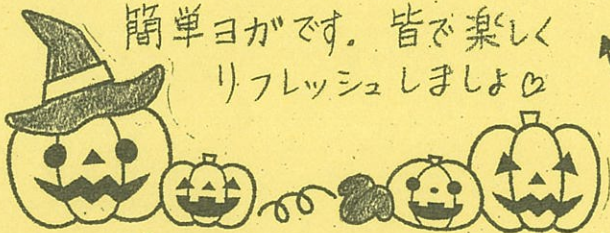 簡単ヨガです。皆で楽しく
リフレッシュしましょ♡